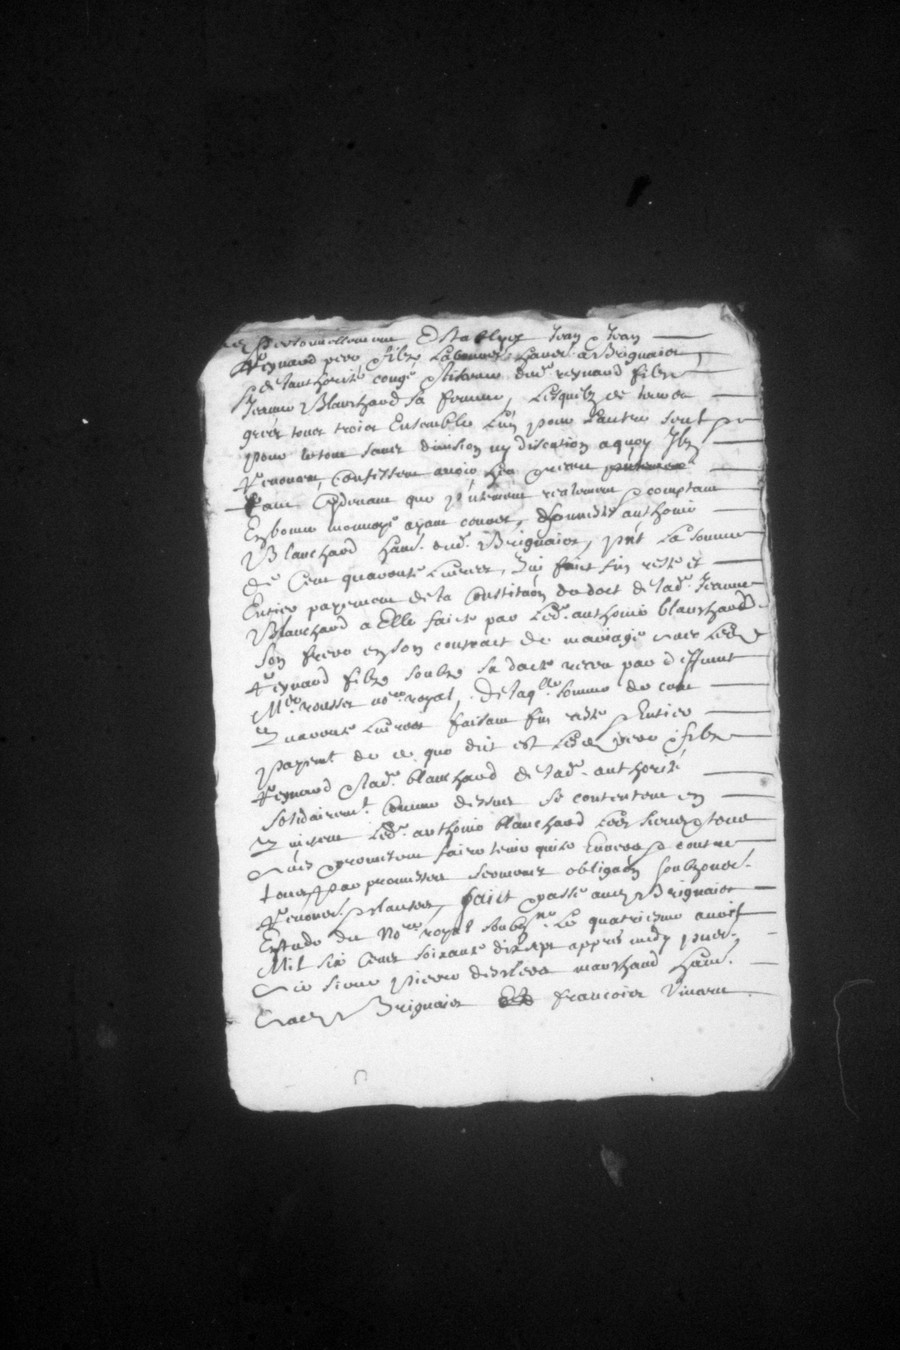 Personnellement Establys Jean & Jean
Reynaud pere & filz Laboureurs hans. a Brignaiz
de lauthorité congé & licence dud. reynaud filz
Jeanne Blanchard sa femme, Lesquelz de leur
gréz tous troiz Ensemble L'un pour L'autre seul
pour le tout sans division ny discution aquoy Ilz
Renoncent, Confessent avoir heu & receu
que reelement & comptant
En bonne monnoye ayant cours, d'honneste anthoine
Blanchard han. dud. Brignaiz, pnt La somme
de Cent quarante Livres, Qui faict fin reste et
Entier payement de la Constitution de dot de lad. Jeanne
Blanchard a Elle faicte par Led. anthoine blanchard
son frere en son contract de mariage avec Led.
Reynaud filz soubz sa datte receu par deffunt
Me. rousset nore. royal, De laqlle somme de cent
Quarante Livres faisant fin reste & Entier
payemt de ce que dit est Lesd. pere & filz
Reynaud & lad. blanchard de lad. authorité
solidairemt. Comme dessus se contentent en
Quittent Led. anthoine blanchard Led. & tous
promettent faire tenir quitte Envers & contre
tous par promesses serments obligaon soubzmis.
Renonc. & clauses, faict & passé aud. Brignaiz
Estude du Nore royal soubzne. Le quatriesme avril
Mil six Cens soixante dix sept appres midy pnce.
sieur pierre marchand han.
Brignaiz francois Vinant